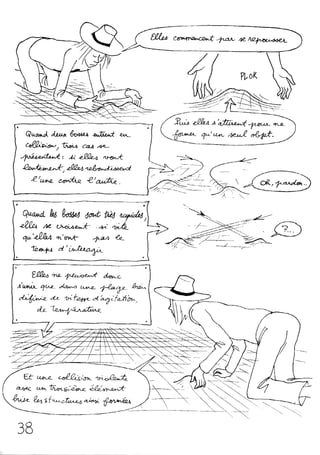 Elles commencent par se repousser
PLOK
Puis elles s'attirent pour ne
former qu'un seul objet.
Quand deux bosses entrent en
collision, trois cas se
présentent : si elles vont
lentement, elles rebondissent
l'une contre l'autre.
Oh, pardon..
Quand les bosses sont très rapides,
elles se croisent si vite
qu'elles n'ont pas le
temps d'interagir
?..
Elles ne peuvent donc
s'unir que dans une plage bien
définie de vitesse d'agitation,
de température
Et une collision violente
avec un troisième élément
brise les structures ainsi formées
38